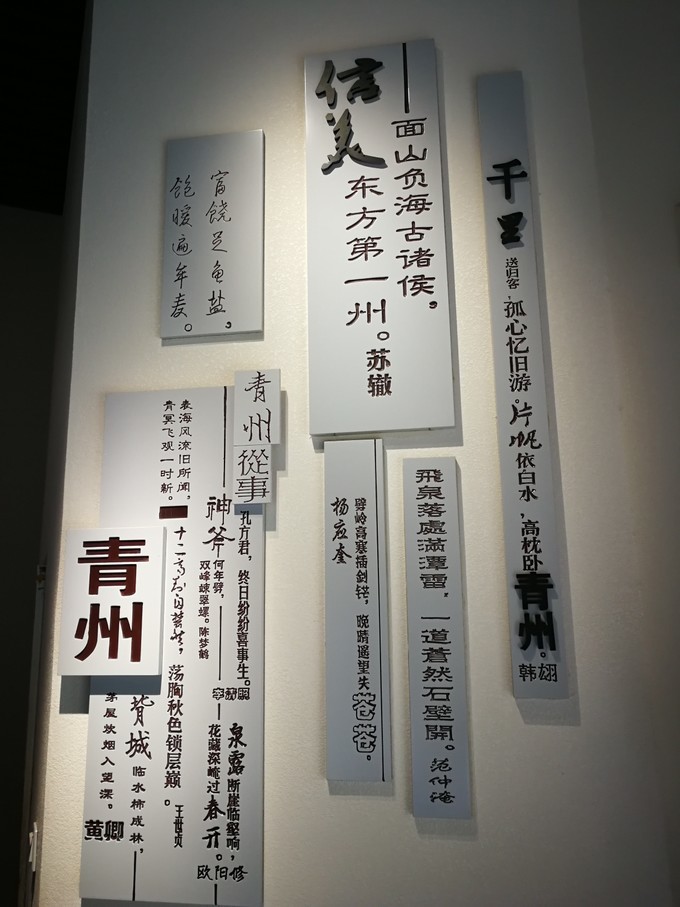 千里送归客,孤心忆旧游。片帆依白水,高枕卧青州。韩翃
面山负海古诸侯,
信美东方第一州。苏辙
富饶足鱼盐,
饱暖遍牟麦。
飛泉落處滿潭雷,一道蒼然石壁開。范仲淹
劈岭高寒插剑铓,晚晴遥望失苍苍。
杨应奎
青州
從事
孔方君,终日纷纷喜事生。
李清照
神斧何年劈,
双峰竦翠螺。陈梦鹤
泉露断崖临壑响,
花藏深崦过春开。
欧阳修
表海风流旧所闻,
青冥飞观一时新。
十二
荡胸秋色锁层巅。
王世贞
青州
背城临水柿成林,
茅屋炊烟入望深。
黄卿